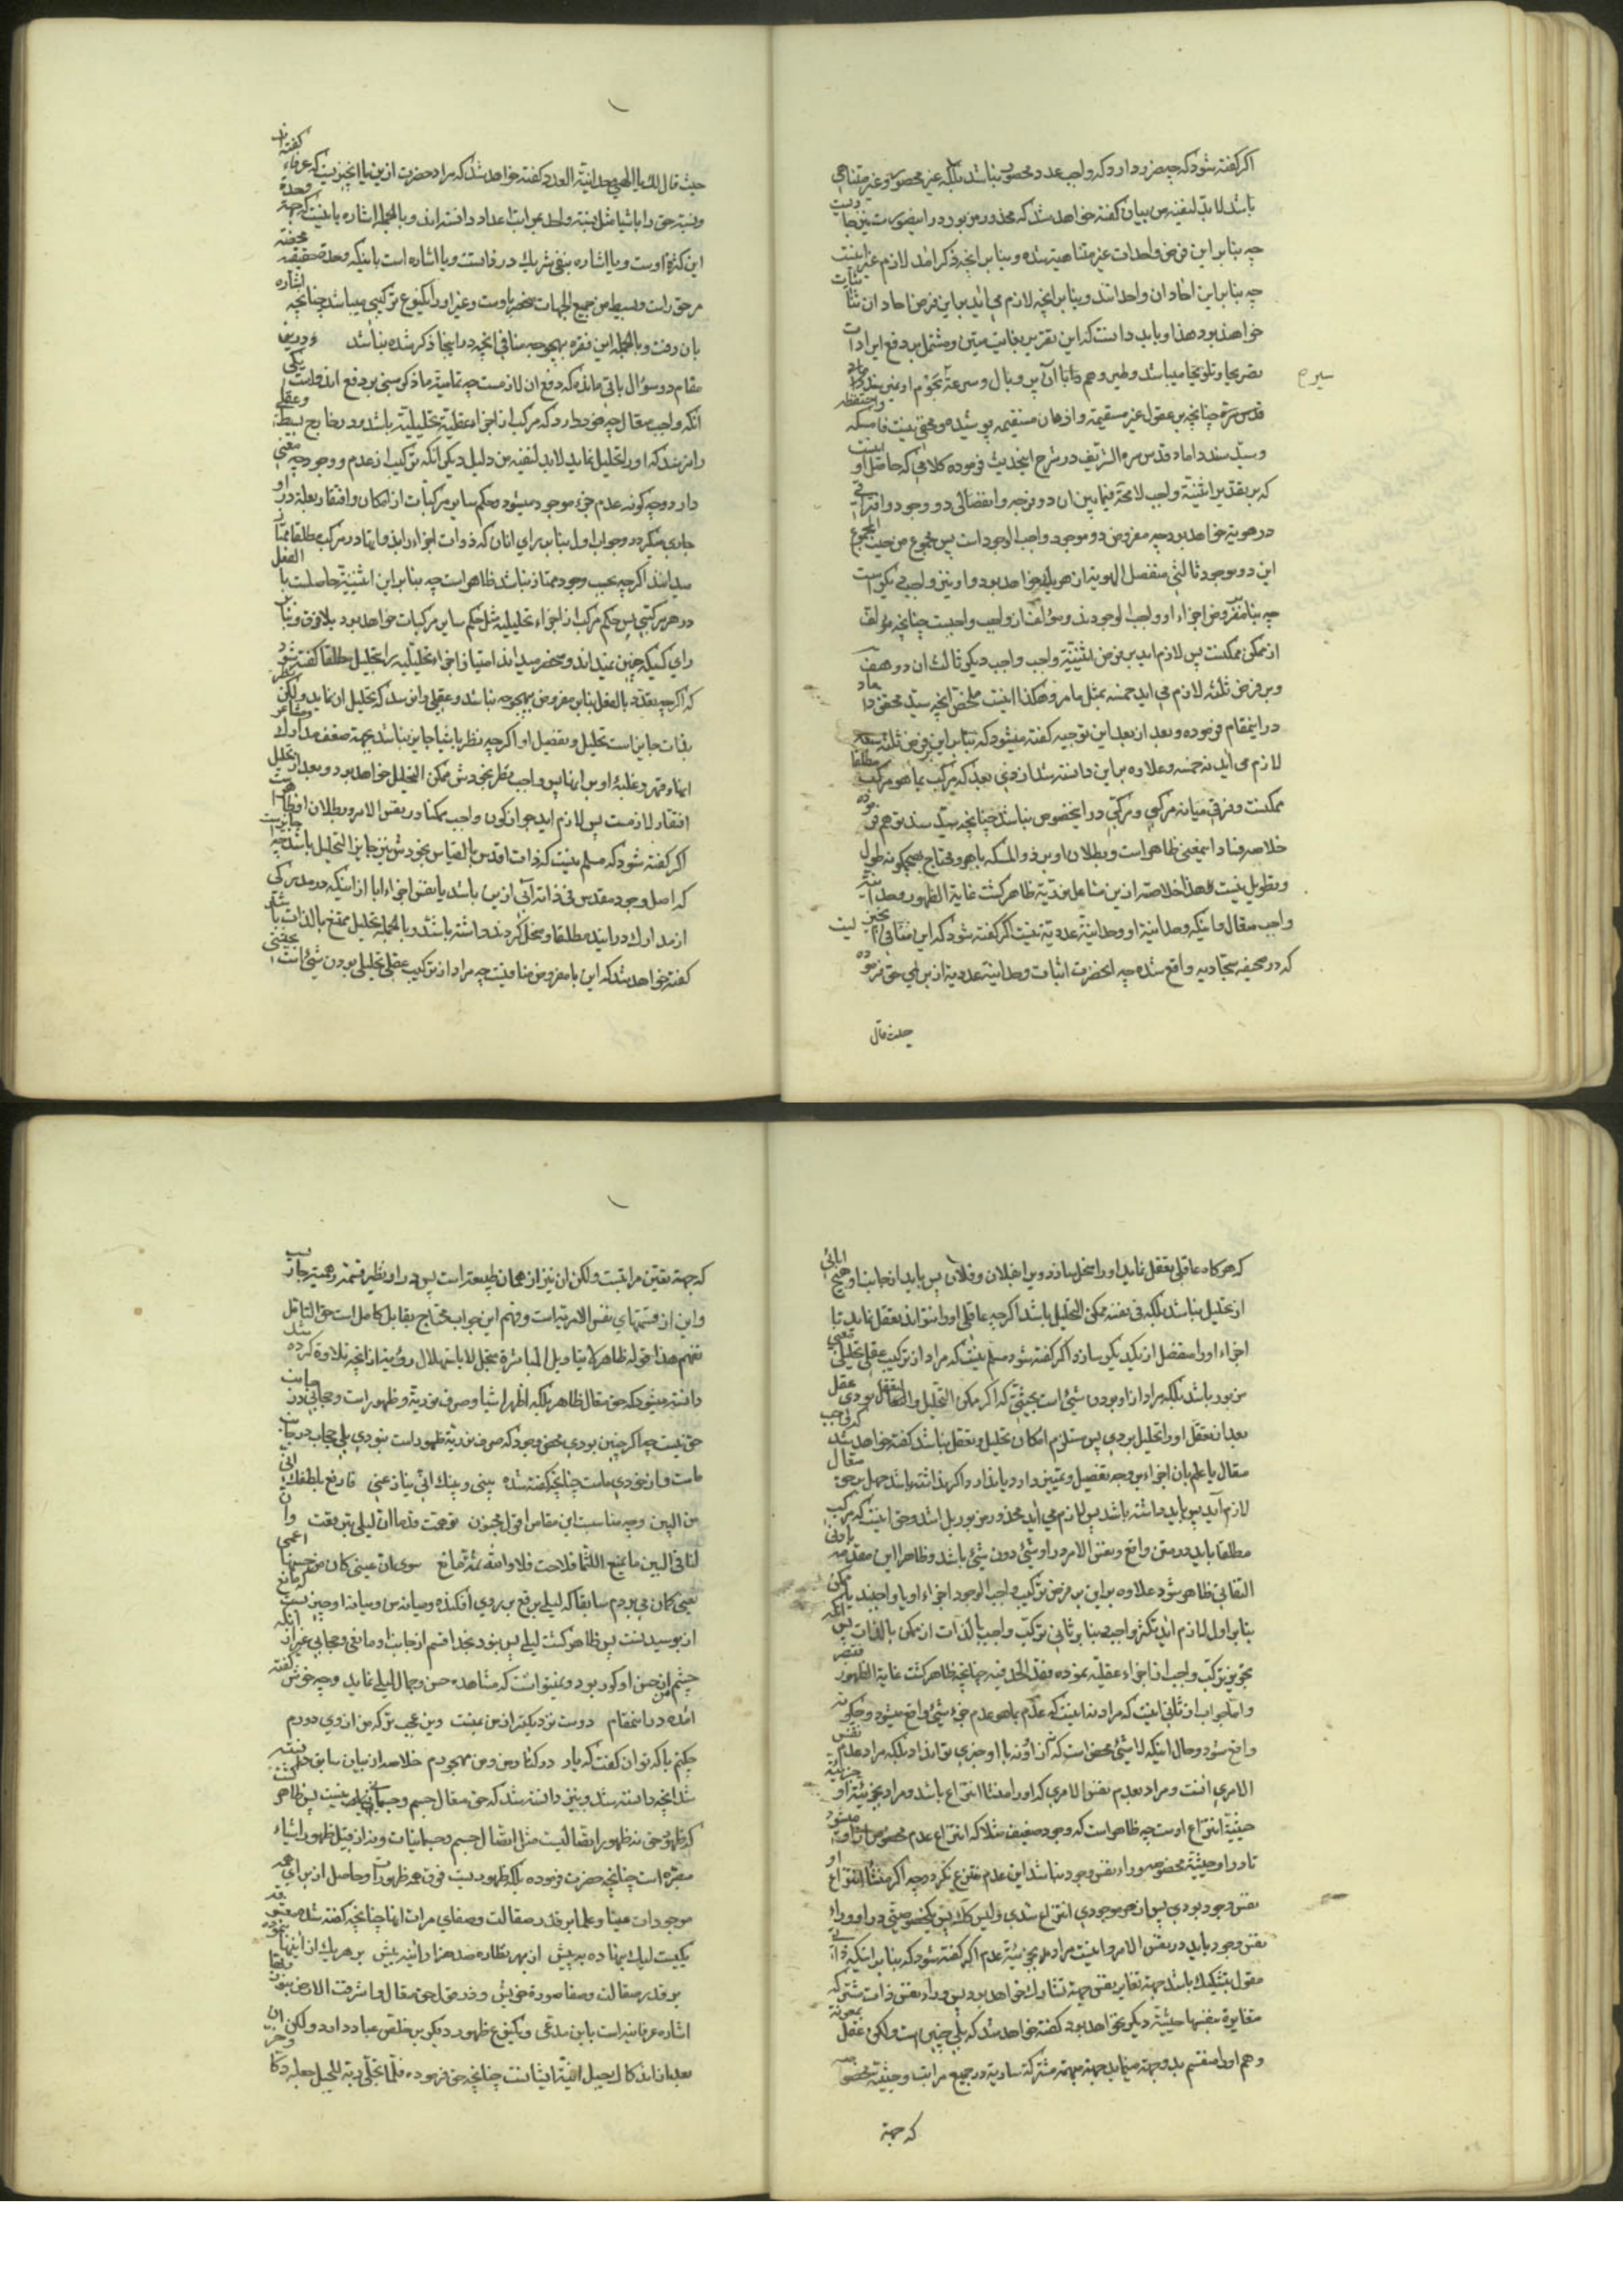 اکر کفته شود که چه ضرر دارد که واجب عدد محصور نباشد بلکه غیر محصور و غیر متناهی
باشد لابد لنفیه من بیان کفته خواهد شد که محذور مزبور در اینصورت نیز جا
چه بنابر این فرض واحدات غیر متناهیه شده و بنابر انچه ذکر شد لازم
چه بنابر این احادان واحداند و بنابر انچه لازم می اید بر این فرض احاد ان
خواهد بود هذا و باید دانست که این تقریر بغایت متین و مشتمل بر دفع ایرادات
تصریحا و تلویحا میباشد و طیر وهم
قدس سره چنانچه بر عقول غیر سقیمه و اذهان مستقیمه پوشیده و مختفی نیست
و سید سند داماد قدس سره الشریف در شرح اینحدیث فرموده کلامی که حاصل او
که بر تقدیر اثنینیة واجب لامحة فیما بین ان دو فرجه و انفصالی دو وجود و
در هویة خواهد بود چه مفروض دو موجود واجب الوجود است پس مجموع من حیث المجموع
این دو موجود ثالثی منفصل الهویة از هر یک خواهد بود و او نیز واجب دیکر است
چه بنا مفروض اجزاء او واجب الوجودند و مؤلف از واجب و واجبست چنانچه مؤلف
از ممکن ممکنست پس لازم اید بر فرض اثنینیة واجب واجب دیکری ثالث ان دو هف
و بر فرض ثلثه لازم می اید خمسه بمثل مامر و هکذا اینست ملخص انچه سید محقق داماد
در اینمقام فرموده و بعد از بعد این توجیه کفته میشود که بنابر این فرض ثلثه
لازم می اید نه خمسه و علاوه بر این دانسته شد از ذی بعد که مرکب بما هو مرکب مطلقا
ممکنست و فرقی میانه مرکبی و مرکبی در اینخصوص نباشد چنانچه سید سند توهم فرموده
خلاصه فساد اینمعنی ظاهر است و بطلان او بر ذو المسکه باهر و محتاج بهیچکونه طول
و تطویل نیست هذا خلاصه از این مشاعل نوریة ظاهر کشت غایة الظهور وحدانیة
واجب متعال و اینکه وحدانیة او وحدانیة عددیة نیست اکر کفته شود که این منافی
که در صحیفه سجادیه واقع شده چه انحضرت اثبات وحدانیة عددیة از برای حق فرموده
حیث قال
حیث قال لک یا الهی وحدانیة العدد کفته خواهد شد که مراد حضرت از این یا انچیزیست که عرفاء کفته اند
و نسبة حق را باشیا مثل نسبة واحد بمراتب اعداد دانسته اند و بالجمله اشاره باینست که جهة وحدة
این کثرة اوست و یا اشاره بنفی شریک در فاست و یا اشاره است باینکه وحدة حقیقیه محضه
مر حق راست و بسیط من جمیع الجهات منحصر باوست و غیر او را یکنوع ترکیبی میباشد چنانچه اشاره
بان رفت و بالجمله این فقره بهیچوجه منافی انچه در اینجا ذکر شده نباشد و در این
مقام دو سؤال باقی مانده که دفع ان لازمست چه تمامیة ما ذکر مبنی بر دفع اندو است یکی
انکه واجب متعال چه ضرر دارد که مرکب از اجزاء عقلیة تحلیلیة باشد و در خارج بسیط و عقلی
را نرسد که او را تحلیل نماید لابد لنفیه من دلیل دیکری انکه ترکیب از عدم و وجود چه معنی
دارد و چه کونه عدم جزء موجود میشود و حکم سایر مرکبات از امکان و افتقار بعلة در او
جاری میکردد و جواب اول بنابر رای انان که ذوات اجزاء را بذواتها در مرکب مطلقا ممتاز
میدانند اکر چه بحسب وجود ممتاز نباشد ظاهر است چه بنابر این اثنینیة حاصلست بالفعل
در هر مرکبی پس حکم مرکب از اجزاء تحلیلیه مثل حکم سایر مرکبات خواهد بود بلا فرق و بنابر
رای کسیکه چنین نمیداند و منحصر میداند امتیاز اجزاء تحلیلیه را بتحلیل مطلقا کفته شود
که اکر چه تعدد بالفعل بنابر مفروض بهیچوجه نباشد و عقلی را نرسد که تحلیل ان نماید ولکن نظر
بذات جایز است تحلیل و تفصیل او اکر چه نظر باشیا جایز نباشد بجهة ضعف مدارک و مشاعر
انها و قهر و غلبۀ او بر انها پس واجب نظر بخودش ممکن التحلیل خواهد بود و بعد از تحلیل
افتقار لازمست پس لازم اید جواز کون واجب ممکنا در نفس الامر و بطلان او ظاهر است
اکر کفته شود که مسلم نیست که ذات اقدس بالقیاس بخودش نیز جایز التحلیل باشد چه جایز است
که اصل وجود مقدس فی ذاته آبی از این باشد یا نفس اجزاء ابا از اینکه در مدرکی
از مدارک درایند مطلقا و منحل کردند داشته باشند و بالجمله تحلیل ممتنع بالذات باشد
کفته خواهد شد که این با مفروض منافیست چه مراد از ترکیب عقلی تحلیلی بودن شیئ است بحیثیتی
که هر کاه عاقلی تعقل نماید او را منحل سازد و بر اخیلان و فلان پس باید از جانب او هیچ ابائی
از تحلیل نباشد بلکه فی نفسه ممکن التحلیل باشد اکر چه عاقلی او را نتواند تعقل نماید تا
اجزاء او را منفصل از یکدیکر سازد اکر کفته شود مسلم نیست که مراد از ترکیب عقلی تحلیلی معنی
مزبور باشد بلکه مراد از او بودن شیئ است بحیثیتی که اکر ممکن التحلیل والتعقل بودی عقل
بعد از تعقل او را تحلیل بردی پس مستلزم امکان تحلیل و تعقل نباشد کفته خواهد شد که واجب
متعال یا علم بان اجزاء بر وجه تفصیل و تمییز دارد یا ندارد و اکر نداشته باشد جهل بر حق متعال
لازم آید پس باید داشته باشد پس لازم می اید محذور مزبور بل اشد و حق اینست که مرکب
مطلقا باید در متن واقع و نفس الامر در او شیئ دون شیئ باشد و ظاهرا این مقدمه بادنی
التفاتی ظاهر شود علاوه بر این بر فرض ترکیب واجب الوجود اجزاء او یا واجبند یا ممکن
بنابر اول لازم اید تکثر واجب و بنابر ثانی ترکب واجب بالذات از ممکن بالذات پس انکه
تجویز ترکب واجب از اجزاء عقلیة نموده فقد الحد فیه چنانچه ظاهر کشت غایة الظهور
و اما جواب از ثانی اینست که مراد نه اینست که عدم بما هو عدم جزء شیئ واقع میشود و چکونه
واقع شود و حال اینکه لا شیئ محض است که از او نه با او چیزی تواند بلکه مراد عدم نفس
الامری است و مراد بعدم نفس الامری که او را منشأ انتزاع باشد و مراد بجزئیة او
حیثیة انتزاع اوست چه ظاهر است که وجود ضعیف مثلا که انتزاع عدم مخصوص از او میشود
تا در او حیثیة مخصوصه وراء نفس وجود نباشد این عدم منتزع نکردد چه اکر منشأ انتزاع او
نفس وجود بودی پس از هر موجودی انتزاع شدی ولیس کذلک پس یک خصوصیتی در او وراء
نفس وجود باید در نفس الامر و اینست مراد بجزئیة عدم اکر کفته شود که بنابر اینکه
مقول بتشکیک باشد جهة تغایر نفس جهة تشارک خواهد بود پس وراء نفس ذات مشترکه
مغایرة بنفسها حیثیة دیکر نخواهد بود کفته خواهد شد که بلی چنین است ولکن عقل بمعونة
وهم او را منقسم بدو جهة مینماید جهة مبهمه مشترکه ساریة در جمیع مراتب و حیثیة مخصوصه
که جهة
که جهة تعین مرا تبست ولکن ان نیز از همان طبیعتراست پس در او نظیر قسمة وهمیة جاریست
و این از قسمتهای نفس الامریه است و فهم این جواب محتاج بتامل کاملست حق التامل
تفهم هذا قوله ظاهر لا بتاویل المباشرة متجل لا باستهلال رؤیة از انچه تلاوة کرده شد
دانسته میشود که حق متعال ظاهر بلکه اظهر اشیا و صرف نوریة و ظهور است و حجابی در جانب
حق نیست چه اکر چنین بودی محض وجود که صرف نوریة ظهور است نبودی بلی حجاب در جانب
ماست و از خودی ماست چنانچه کفته شده بینی و بینک انی ینازعنی فارفع بلطفک انی
من البین وچه مناسبست این مقام را قول مجنون توهمت قدما ان لیلی تبرقعت وان
لنا فی البین ما یمنع اللثما فلاحت فلا والله ثمة مانع سوی ان عینی کان من حسنها اعمی
یعنی کمان می بردم سابقا که لیلی برقع بر روی افکنده و میانه من و میانه او چیزیست که مانع
از بوسیدنست پس ظاهر کشت لیلی پس نبود بخدا قسم از جانب او مانعی و حجابی غیر از انکه
چشم من از حسن او کور بود و نمیتوانست که مشاهده حسن و جمال لیلی نماید و چه خوش کفته
انکه در اینمقام دوست نزدیکتر از من بمنست وین عجب تر که من از وی دورم
چکنم با که توان کفت که یار در کنار من و من مهجورم خلاصه از بیان سابق دانسته
شد انچه دانسته شد و نیز دانسته شد که حق متعال جسم و جسمانی نیست پس ظاهر کشت
که ظهور حق نه ظهور اتصالیست مثل اتصال جسم و جسمانیات و نه از قبیل ظهور اشیاء
مبصره است چنانچه حضرت فرموده بلکه ظهوریست فوق همه ظهورات و حاصل از برای همه
موجودات عینا و علما بر قدر صقالت و صفای مرات انها چنانچه کفته شده معشوق
یکیست لیک بنهاده به پیش از بهر نظاره صد هزار ائینه بیش در هر یک از ائینها بنموده
بر قدر صقالت و صفا صورة خویش و در قول حق متعال واشرقت الارض بنور ربها
اشاره عرفانیه است باین مدعی و یکنوع ظهور دیکر بر خلص عباد دارد ولکن ان
بعد از اندکاک جبل انیة ایشانست چنانچه حق فرموده فلما تجلی ربه للجبل جعله دکا